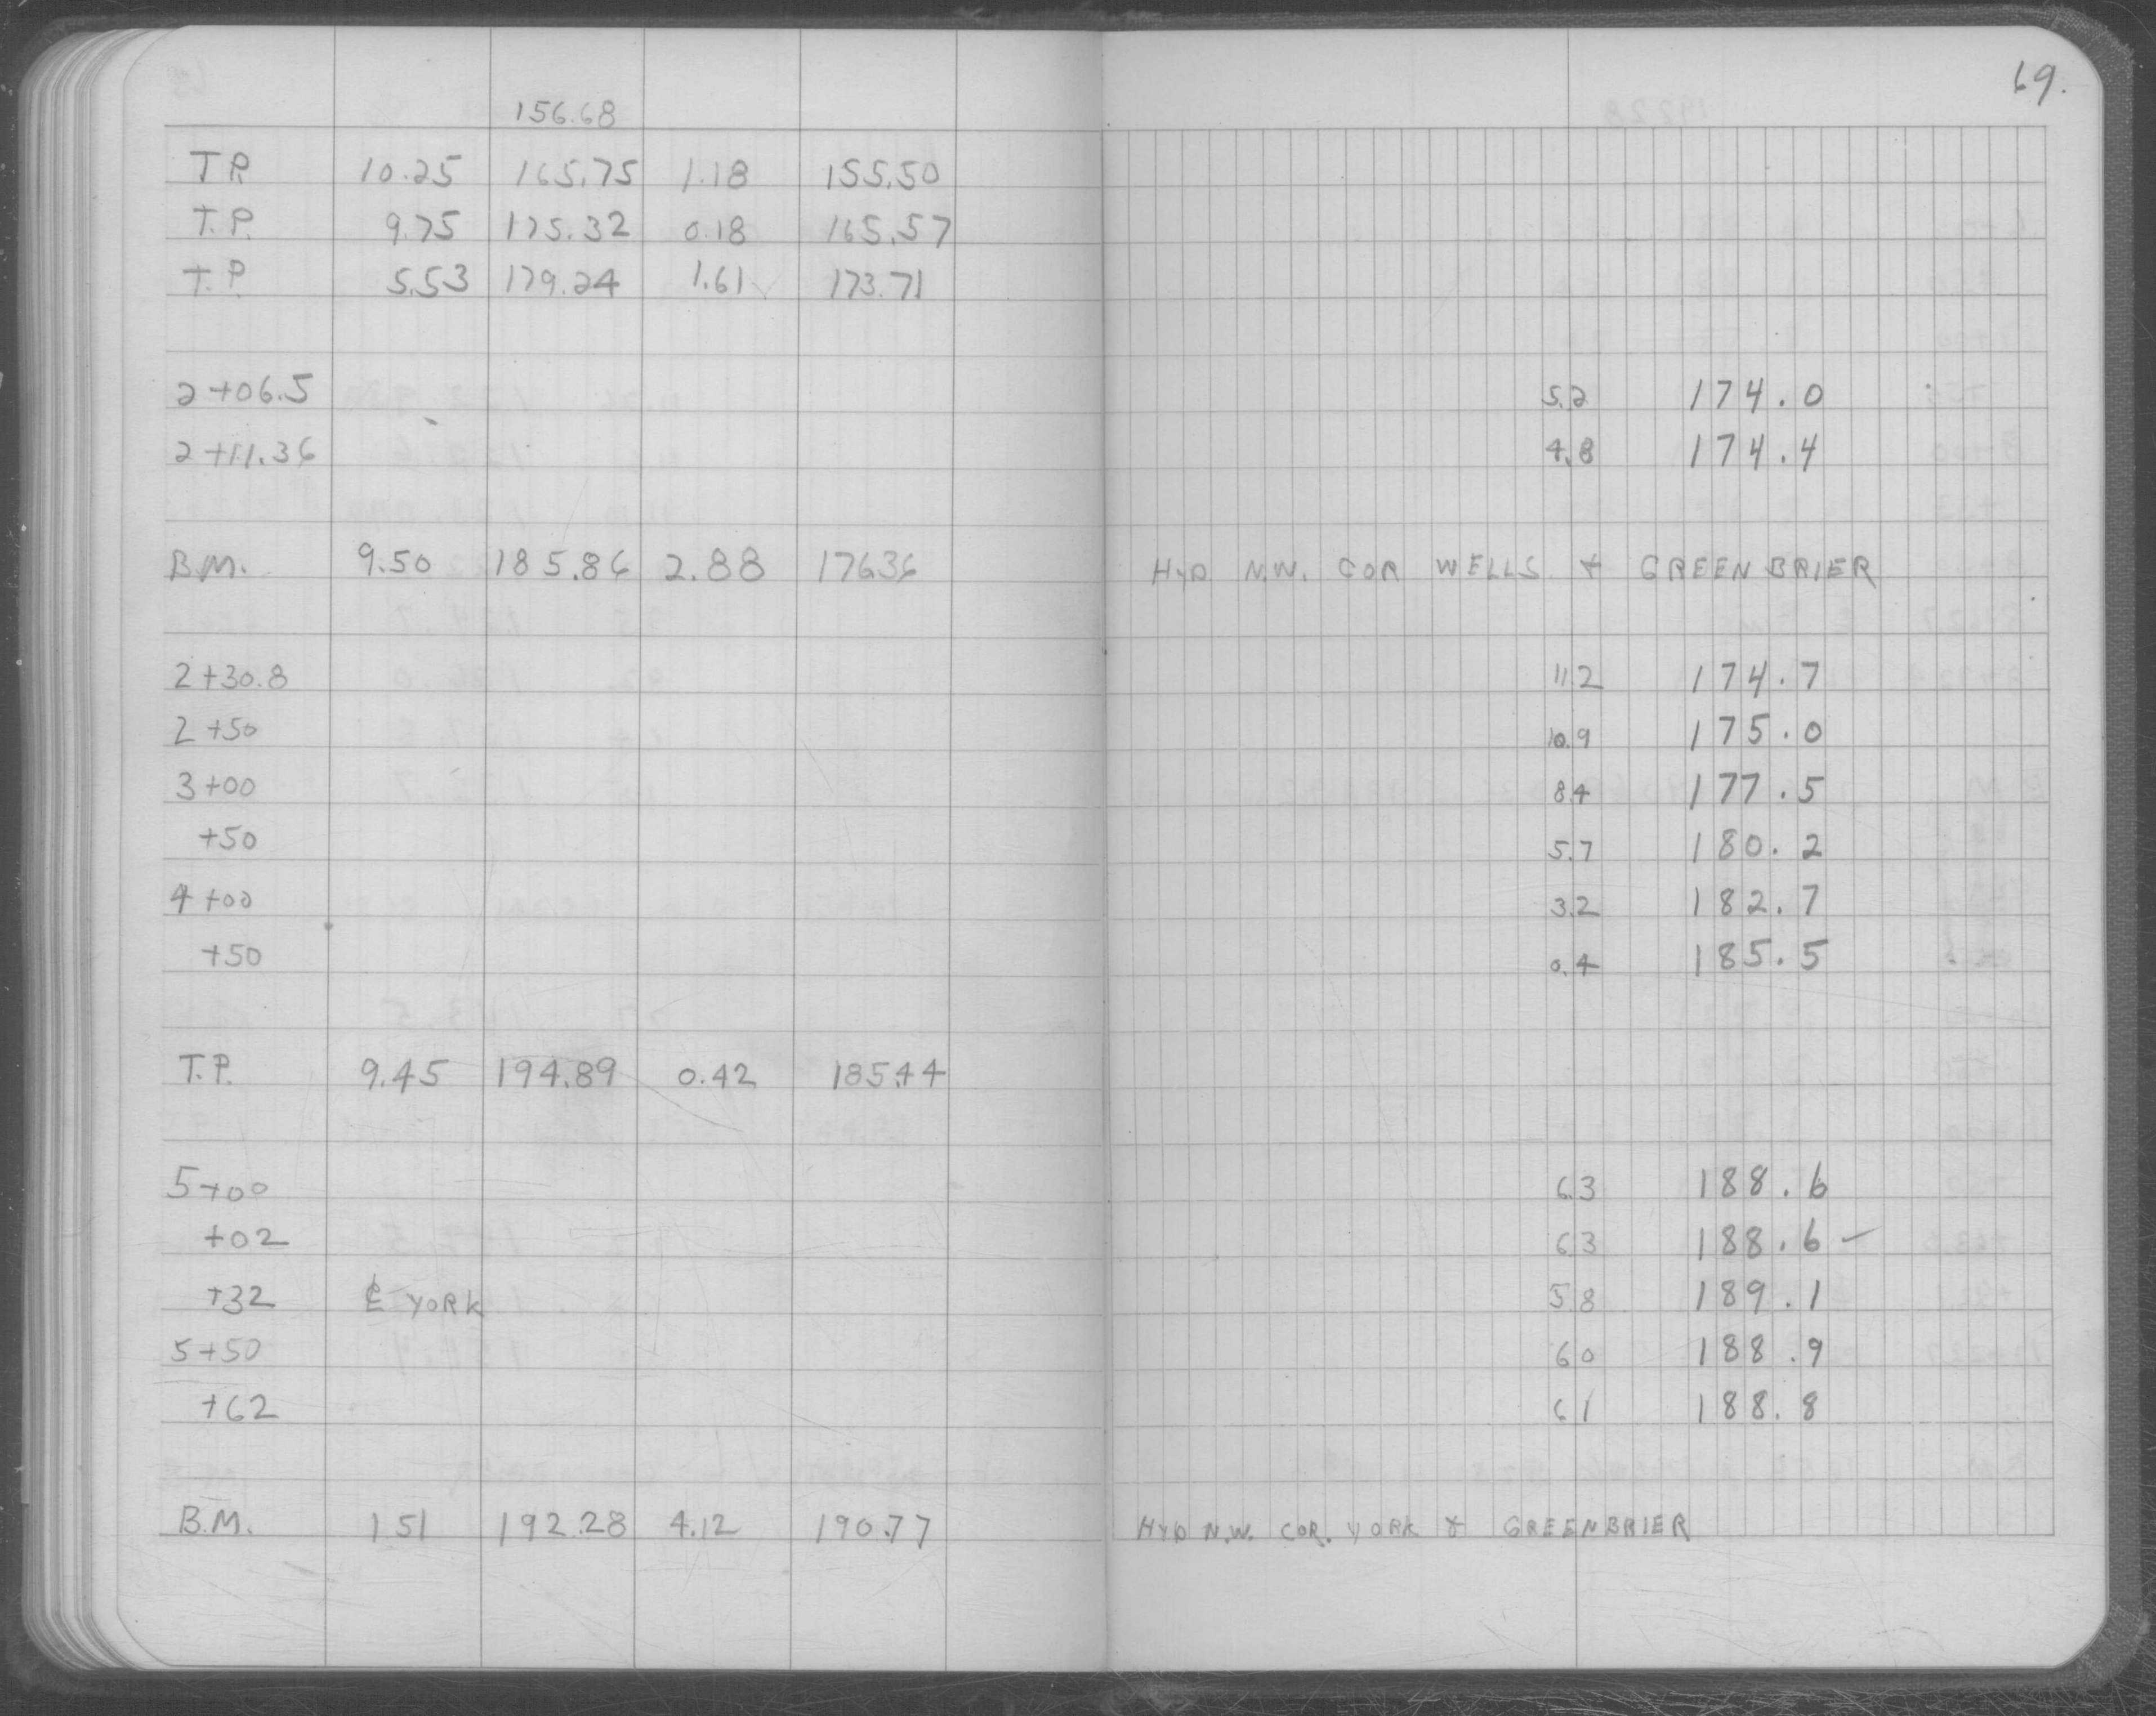 69.
156.68
T.P. 10.25 165.75 1.18 155.50
T.P. 9.75 175.32 0.18 165.57
T.P. 5.53 179.24 1.61 173.71
2+06.5 5.2 174.0
2+11.36 4.8 174.4
B.M. 9.50 185.86 2.88 176.36 HYD N.W. COR WELLS & GREENBRIER
2+30.8 11.2 174.7
2+50 10.9 175.0
3+00 8.4 177.5
+50 5.7 180.2
4+00 3.2 182.7
+50 0.4 185.5
T.P. 9.45 194.89 0.42 185.44
5+00 6.3 188.6
+02 6.3 188.6 -
+32 ℄ YORK 5.8 189.1
5+50 6.0 188.9
+62 6.1 188.8
B.M. 1.51 192.28 4.12 190.77 HYD N.W. COR. YORK & GREENBRIER